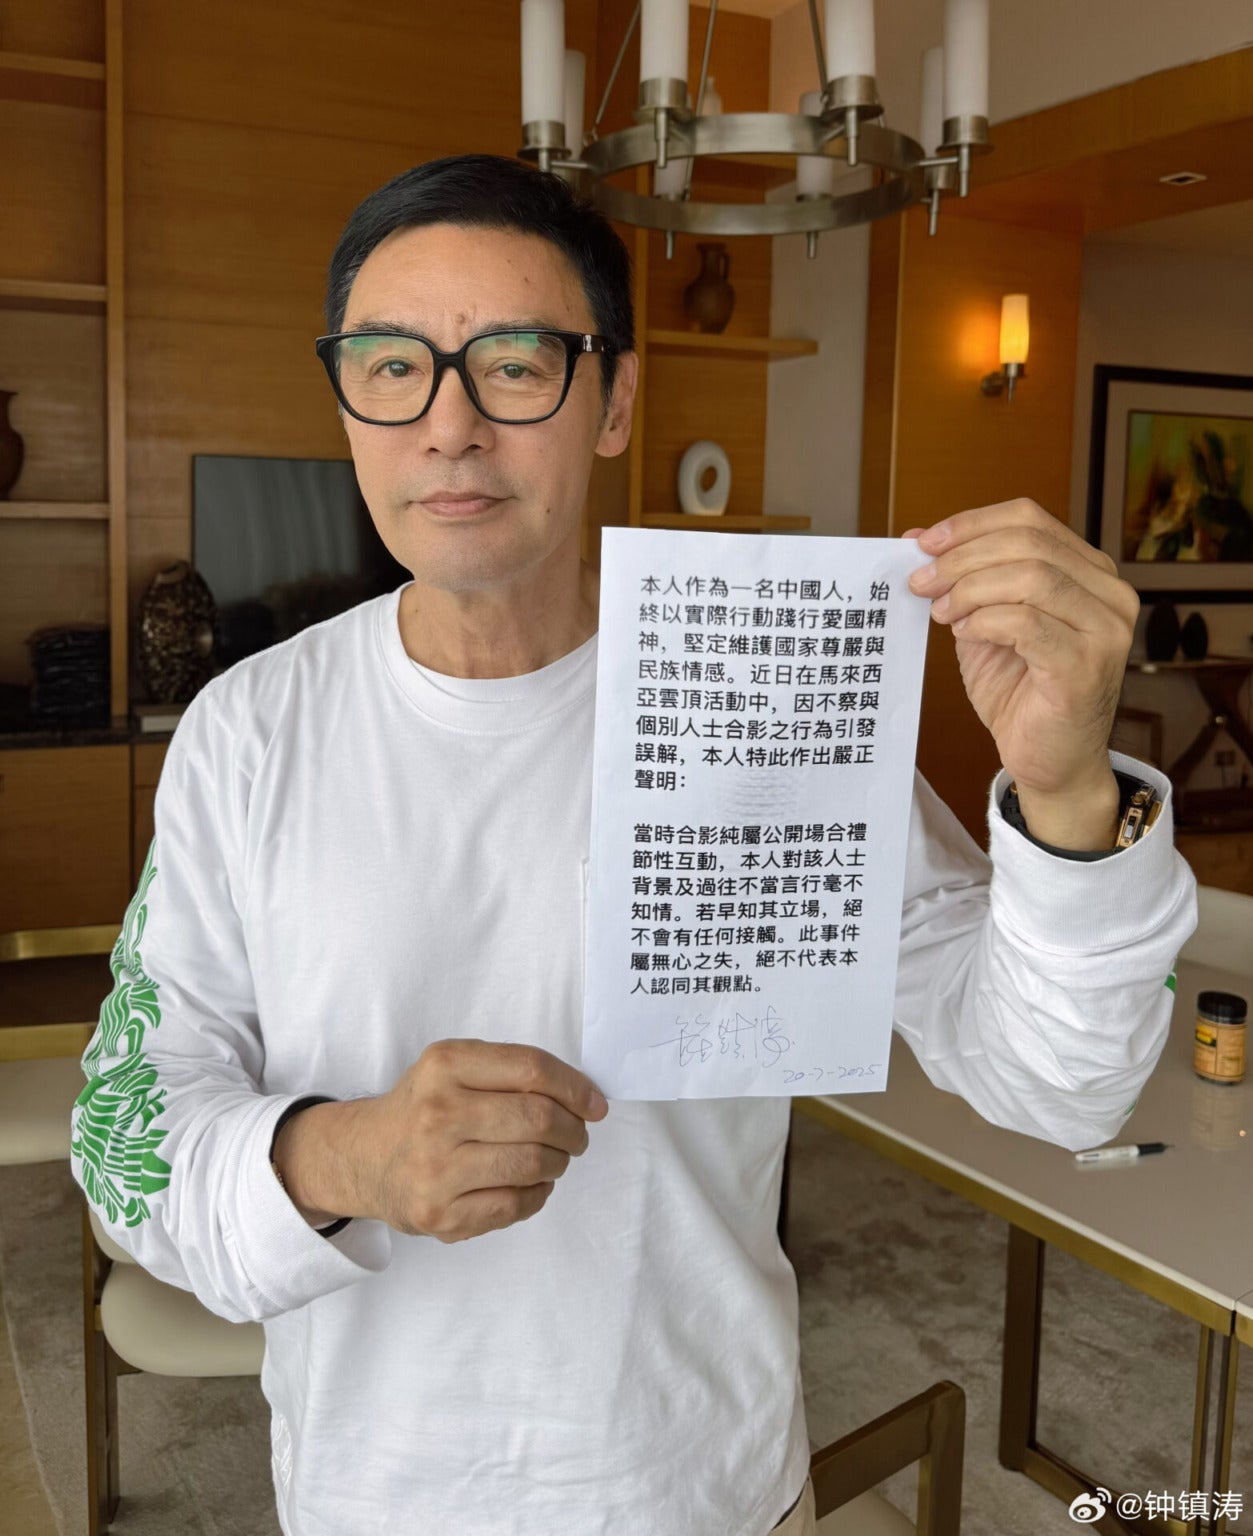 本人作為一名中國人，始
終以實際行動踐行愛國精
神，堅定維護國家尊嚴與
民族情感。近日在馬來西
亞雲頂活動中，因不察與
個別人士合影之行為引發
誤解，本人特此作出嚴正
聲明：
當時合影純屬公開場合禮
節性互動，本人對該人士
背景及過往不當言行毫不
知情。若早知其立場，絕
不會有任何接觸。此事件
屬無心之失，絕不代表本
人認同其觀點。
鍾鎮濤
20-7-2025
@钟镇涛